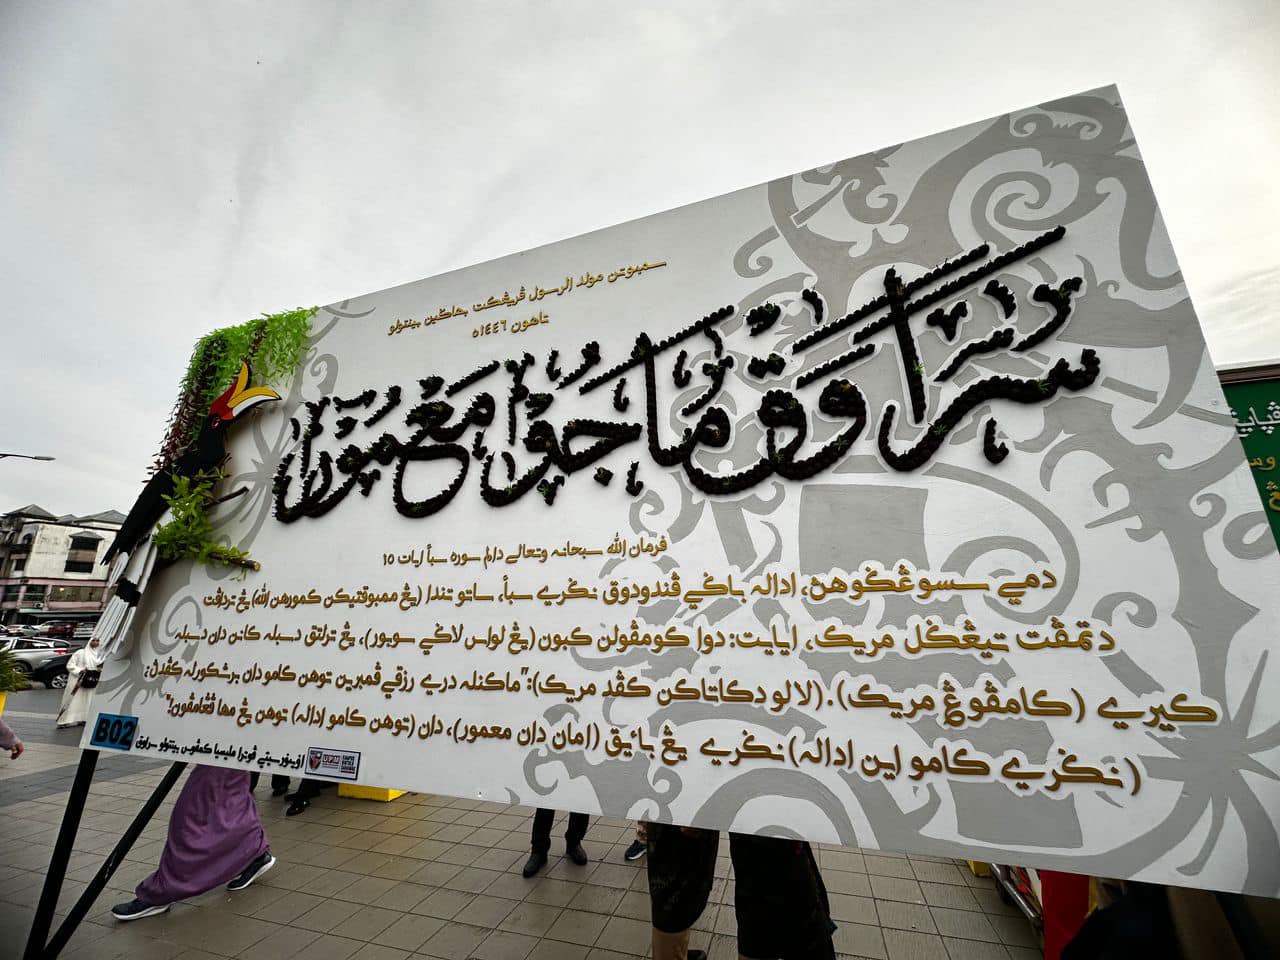 سمبوتن مولد الرسول ڤريڠكت بهاڬين بينتولو
تاهون ١٤٤٦ه
سراوق ماجو معمور
فرمان الله سبحانه وتعالى دالم سوره سبأ ايات ١٥
دمي سسوڠݢوهڽ، ادالہ باݢي ڤندودوق نݢري سبأ، ساتو تندا (يڠ ممبوقتيکن کمورهن الله) يڠ تردافت
دتمڤت تيڠݢل مريک، اياايت: دوا کومڤولن کبون (يڠ لواس لاݢي سوبور)، يڠ ترلتق دسبله کانن دان دسبله
کيري (کامڤوڠ مريک). (لالو دکاتاکن کڤد مريک):"ماکنله دري رزقي ڤمبرين توهن کامو دان برشکورله کڤدڽ؛
(نݢري کامو اين ادالہ) نݢري يڠ باءيق (امان دان معمور)، دان (توهن کامو ادالہ) توهن يڠ مها ڤڠامڤون!"
B02
اونيۏرسيتي ڤوترا مليسيا کمڤوس بينتولو سراوق
UPM